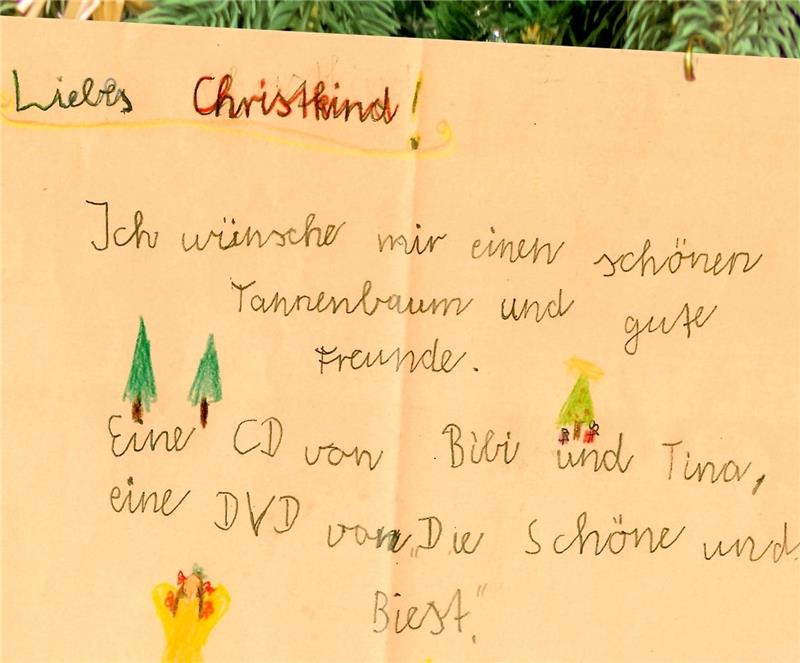 Liebes Christkind!
Ich wünsche mir einen schönen
Tannenbaum und gute
Freunde.
Eine CD von Bibi und Tina,
eine DVD von „Die Schöne und
Biest."